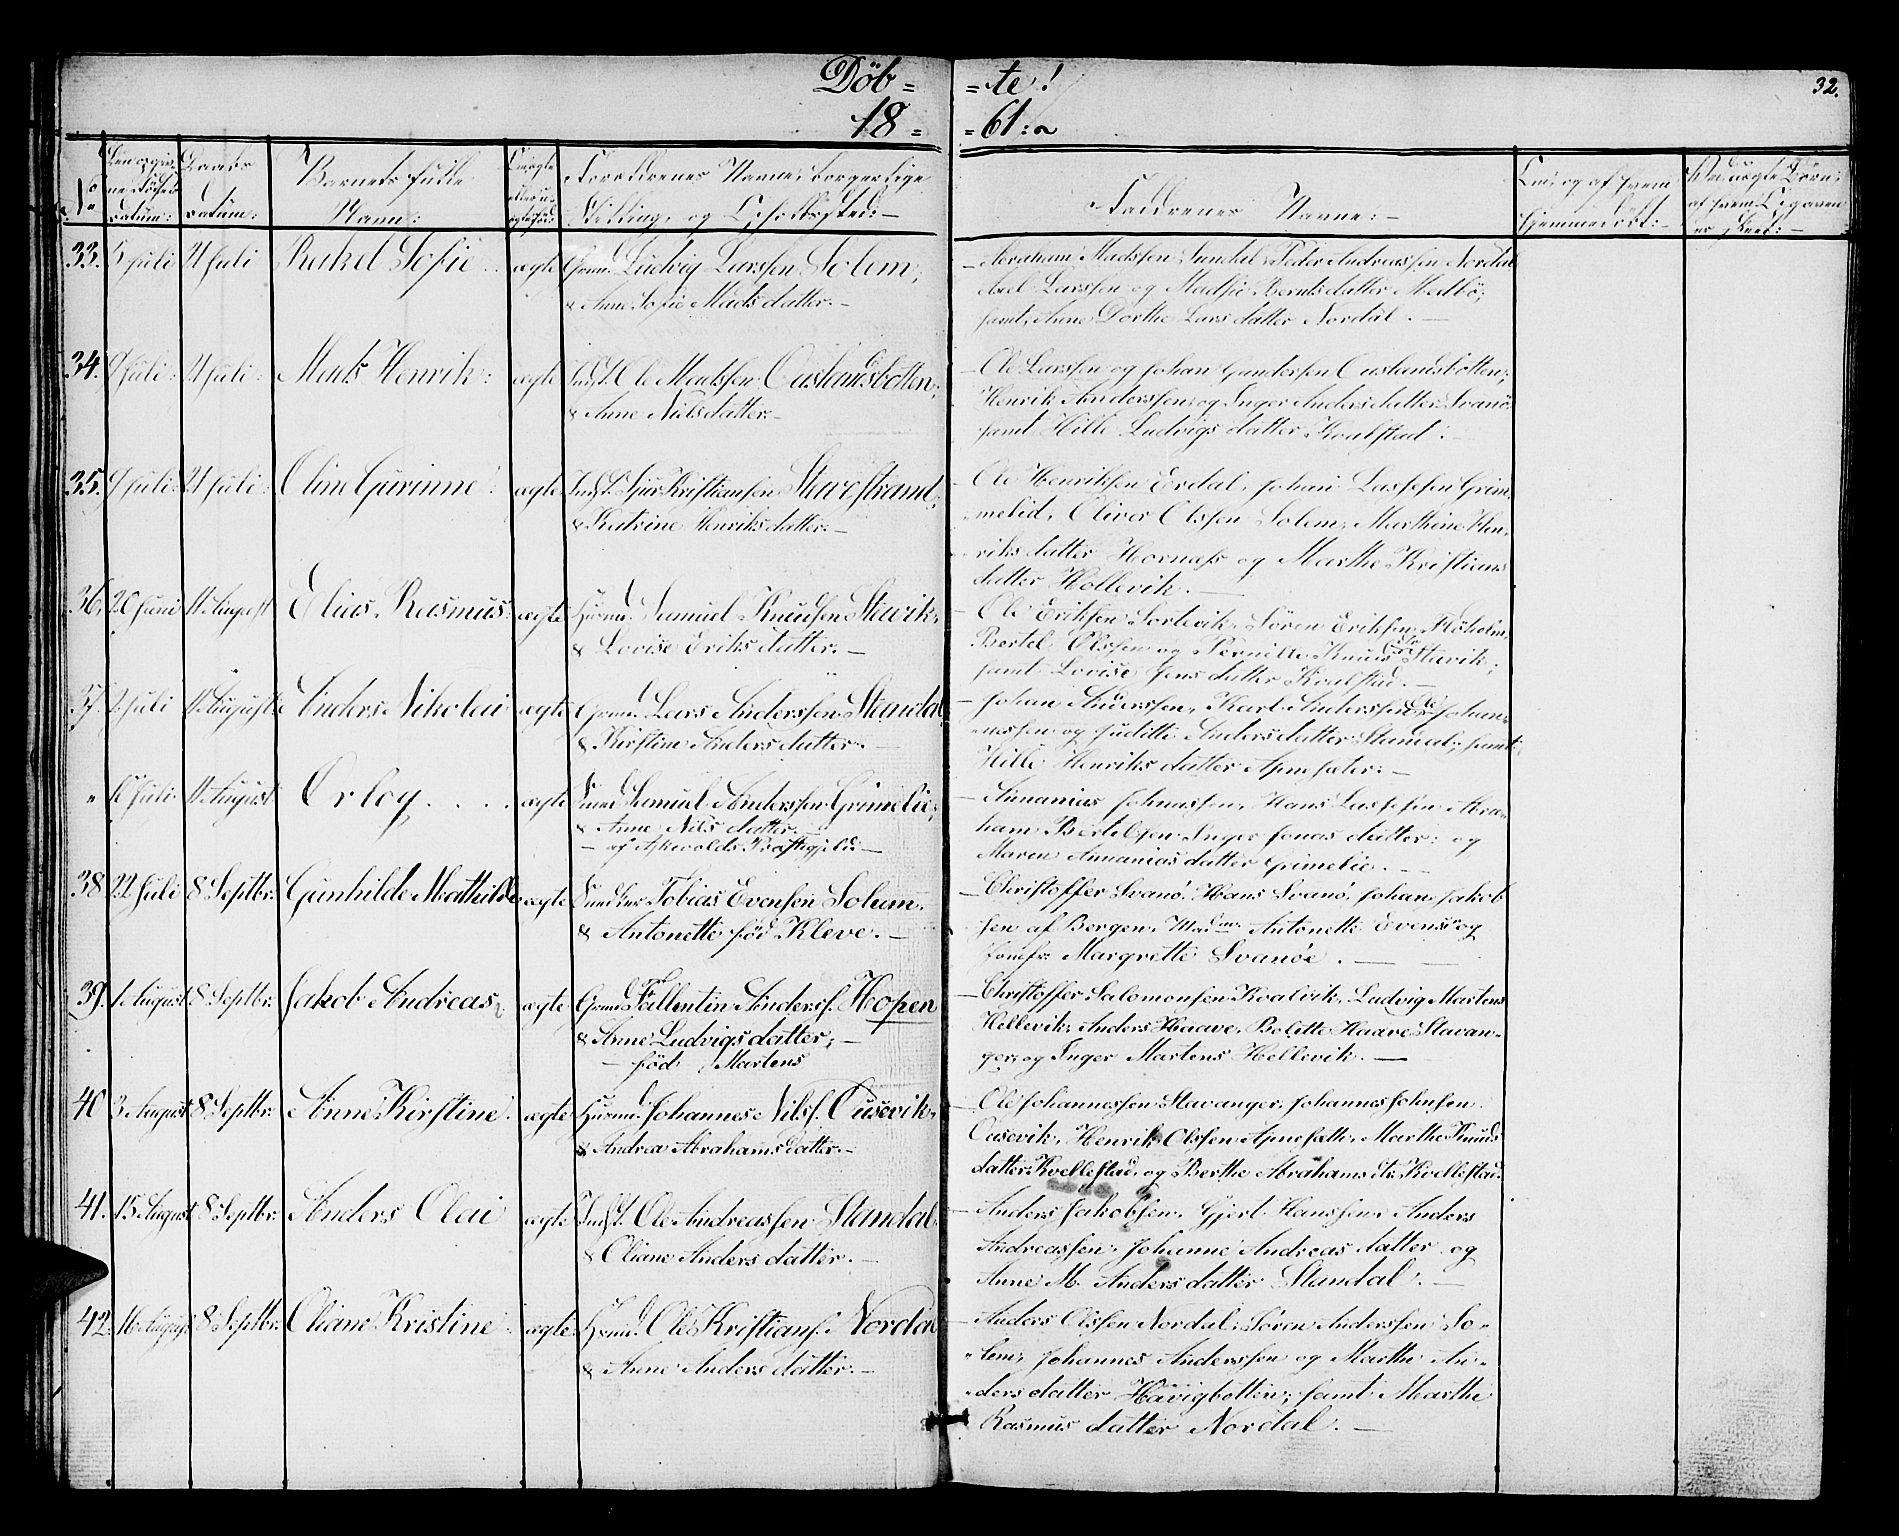 Döb= =te!
32.
18= =61:
No
Daabs
datum:
Barnets fulde
Navn:
Forældrenes Navne, borgerlige
Stilling, og Opholdssted:—
Faddrenes Navne:—
33. 5 juli 21 juli Rakel Sofie ægte Grmd. Ludvig Larssen Solem,
& Anne Sofie Mads datter.—
— Abraham Madssen Peder Andreassen Nordal
Larssen og Madsie Bernts datter
samt, Anne Dorthe Lars datter Nordal.—
34. 9 juli 21 juli Mads Henrik ægte Indst. Ole Madssen Ouslandsbotten,
& Anne Niels datter.—
— Ole Larssen og Johan Gundersen Ouslandsbotten,
Henrik Anderssen, og Inger Anders datter Svanö
samt Hille Ludvigs datter Kvalstad.—
35. 9 juli 21 juli Oline Gurinne ægte Indst. Sjur Kristiansen Stavestrand,
& Katrine Henriks datter:—
Ole Henriksen Erdal, Johan Lasssesen Grim
melid, Oliver Olssen Solem, Marthine Hen,
riks datter Hornæss og Marthe Kristians
datter Hollevik.—
36. 20 juni 11 August Elias Rasmus ægte Husmd. Samuel Knudsen Stavik,
& Lovise Eriks datter.—
— Ole Eriksen Sorlevik, Sören Eriksen Flöholm,
Bertel Olssen og Pernille Knuds Stavik,
samt Lovise Jens datter Kvalstad.—
37. 2 juli 11 August Anders Nikolai ægte Grmd. Lars Anderssen Standal
& Kirstine Anders datter.—
— Johan Anderssen, Karl Anderssen, Ole Johan-
nessen og Juditte Anders datter Standal, samt
Hille Henriks datter Apnesæter:—
" 10 juli 11 August Orlog.... ægte Samuel Anderssen Grimelie,
& Anne Nils datter.
— af Askevolds Præstegjeld.—
— Annanias Johnssen, Hans Lassesen Abra-
ham Bertelsen Inger Jonas datter: og
Maren Annanias datter Grimelie.—
38 22 juli 8 Septbr. Gunhilde Mathilde ægte Tobias Evensen Solum.
& Antonette född Kleve.—
— Christoffer Svanö, Hans Svanö, Johan Jakob
sen af Bergen, Madm. Antonette Evens og
Jomfr: Margrette Svanöe.—
39. 1 August 8 Septbr. Jakob Andreas ægte Grmd. Fallentin Anderss. Hopen
& Anne Ludvigs datter,—
— född Martens
— Christoffer Salomonsen Kvalvik, Ludvig Martens
Hellevik, Anders Haave, Bolette Haave Stavan-
ger, og Inger Martens Hellevik.—
40 3 August 8 Septbr. Anne Kirstine. ægte Husmd. Johannes Nilss. Ousevik,
& Andrea Abrahams datter.—
— Ole Johannessen Stavanger, Johannes Johnsen
Ousevik, Henrik Olssen Apnesætr, Marthe Knuds
datter Kvellestad, og Berthe Abrahams dtr Kvellestad.
41. 15 August 8 Septbr. Anders Olai ægte Indst. Ole Andreassen Standal
& Oliane Anders datter.—
— Anders Jakobsen, Gjert Hanssen, Anders
Andreassen, Johanne Andreas datter og
Anne M. Anders datter Standal.—
42. 16 August 8 Septbr. Oliane Kristine ægte Husmd. Ole Kristians. Nordal
& Anne Anders datter.—
— Anders Olssen Nordal, Sören Anderssen So=
=lem, Johannes Anderssen og Marthe An=
=ders datter Hävigbotten, samt Marthe
Rasmus datter Nordal.—